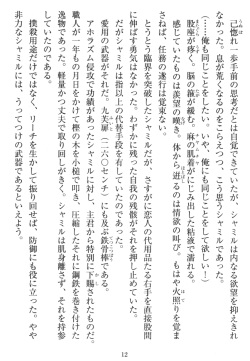 己惚れ一歩手前の思考だとは自覚できていたが、シャミルは内なる欲望を抑えきれ
なかった。息が荒くなるのをこらえつつ、こう思うシャミルであった。
（……俺も同じことを、いや、俺にも同じことをして欲しい！）
股座が疼く。脳の箍が緩む。麻の肌着がにじみ出した粘液で濡れる。
感じていたものは羨望の嘆き。体から迸るのは情欲の叫び。もはや火照りを覚ま
さねば、任務の遂行は覚束ない。
とうとう臨界を突破したシャミルだが、さすがに恋人の代用品たる右手を直接股間
に伸ばす勇気はなかった。わずかに残った自我の残骸がそれを押し止めていた。
だがシャミルは指以上の代替手段を有していたのであった。
愛用の武器がそれだ。九芙蘭（二七〇センチ）にも及ぶ鉄骨棒である。
アホラズム侵攻で功績があったシャミルに対し、主君から特別に下賜されたものだ。
職人が一年もの月日をかけて樫の木を小槌で叩き、圧縮したそれに鋼鉄を巻き付けた
逸物であった。軽量かつ丈夫で取り回しがきく。シャミルは肌身離さず、それを持参
していたのである。
撲殺用途だけではなく、リーチを生かして振り回せば、防御にも役に立った。やや
非力なシャミルには、うってつけの武器であるといえよう。
12